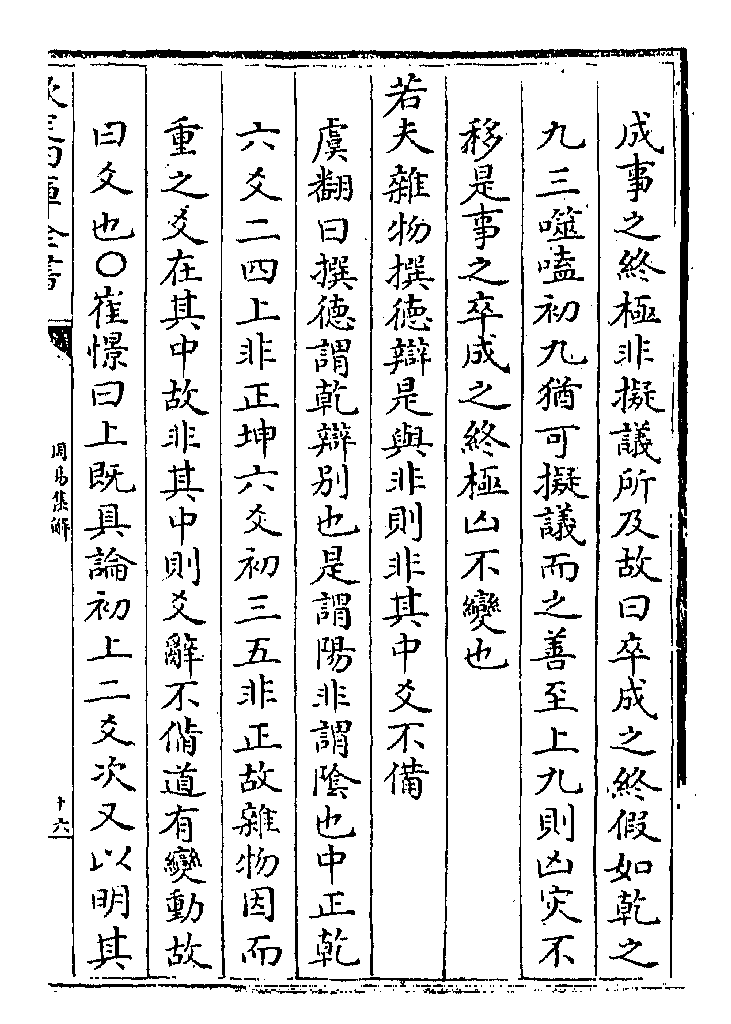 成事之終極非擬議所及故曰卒成之終假如乾之
九三噬嗑初九猶可擬議而之善至上九則凶灾不
移是事之卒成之終極凶不變也
若夫雜物撰德辯是與非則非其中爻不備
虞翻曰撰德謂乾辯別也是謂陽非謂陰也中正乾
六爻二四上非正坤六爻初三五非正故雜物因而
重之爻在其中故非其中則爻辭不備道有變動故
曰爻也〇崔憬曰上既具論初上二爻次又以明其
欽定四庫全書
周易集解
十六